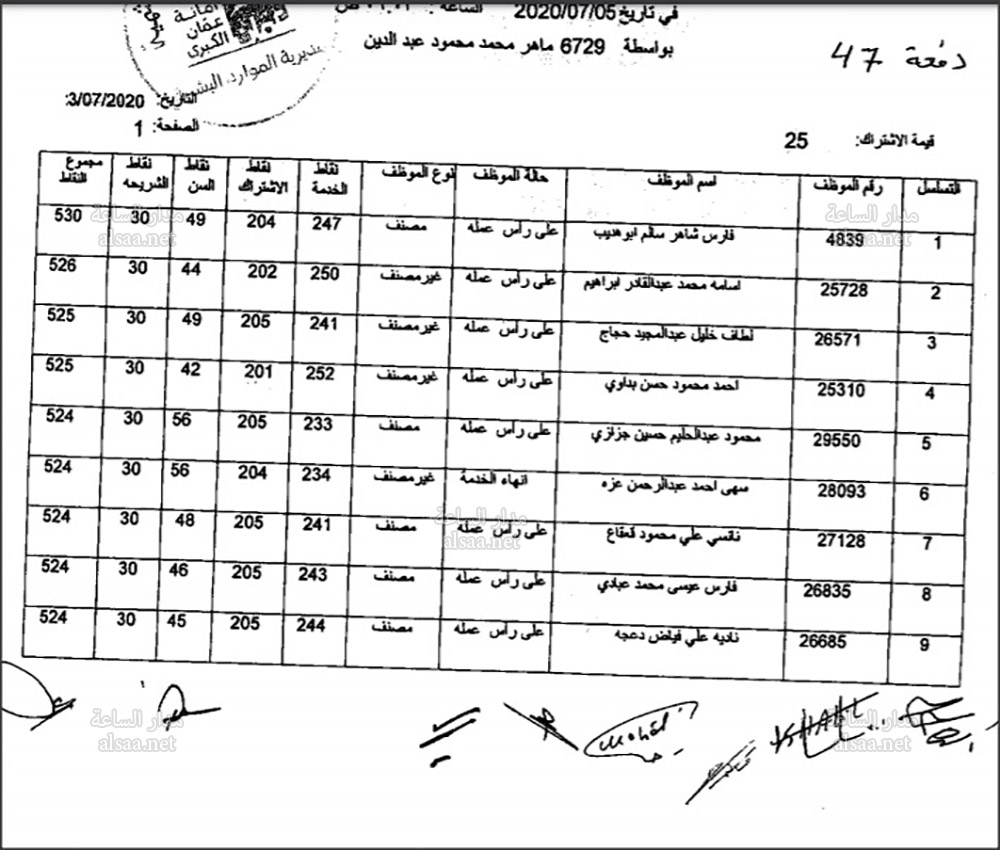 في تاريخ 2020/07/05 الساعة :
بواسطة 6729 ماهر محمد محمود عبد الدين
دفعة 47
أمانة
عمّان
الكبرى
مديرية الموارد البشرية
التاريخ: 3/07/2020
الصفحة: 1
قيمة الاشتراك: 25
التسلسل رقم الموظف اسم الموظف حالة الموظف نوع الموظف نقاط الخدمة نقاط الاشتراك نقاط السن نقاط الشريحه مجموع النقاط
1 4839 فارس شاهر سالم ابوهديب على رأس عمله مصنف 247 204 49 30 530
2 25728 اسامه محمد عبدالقادر ابراهيم على رأس عمله غير مصنف 250 202 44 30 526
3 26571 لطاف خليل عبدالمجيد حجاج على رأس عمله غير مصنف 241 205 49 30 525
4 25310 احمد محمود حسن بداوي على رأس عمله غير مصنف 252 201 42 30 525
5 29550 محمود عبدالحليم حسين جزازي على رأس عمله مصنف 233 205 56 30 524
6 28093 سهى احمد عبدالرحمن عزه انهاء الخدمة غير مصنف 234 204 56 30 524
7 27128 نانسي علي محمود قعقاع على رأس عمله مصنف 241 205 48 30 524
8 26835 فارس عيسى محمد عبادي على رأس عمله مصنف 243 205 46 30 524
9 26685 ناديه علي فياض دعجه على رأس عمله مصنف 244 205 45 30 524
مدار الساعة
alsaa.net
مدار الساعة
alsaa.net
مدار الساعة
alsaa.net
مدار الساعة
alsaa.net
مدار الساعة
alsaa.net